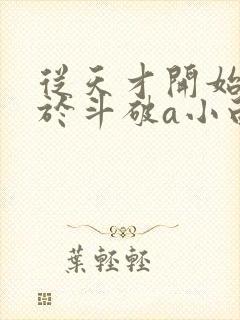 從天才開始
於斗破a小說
葉輕輕